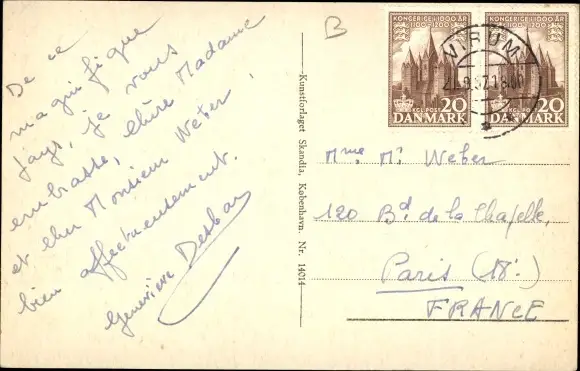 De ce
magnifique
pays, je vous
embrasse, chère Madame
et cher Monsieur Weber,
bien affectueusement.
Geneviève
B
Kunstforlaget Skandia, København. Nr. 14014
KONGERIGE I 1000 ÅR
KGL POST 20
DANMARK
KONGERIGE I 1000 ÅR
KGL POST 20
DANMARK
VIRUM
Mme Mr Weber
120 Bd de la Chapelle,
Paris (18e)
FRANCE